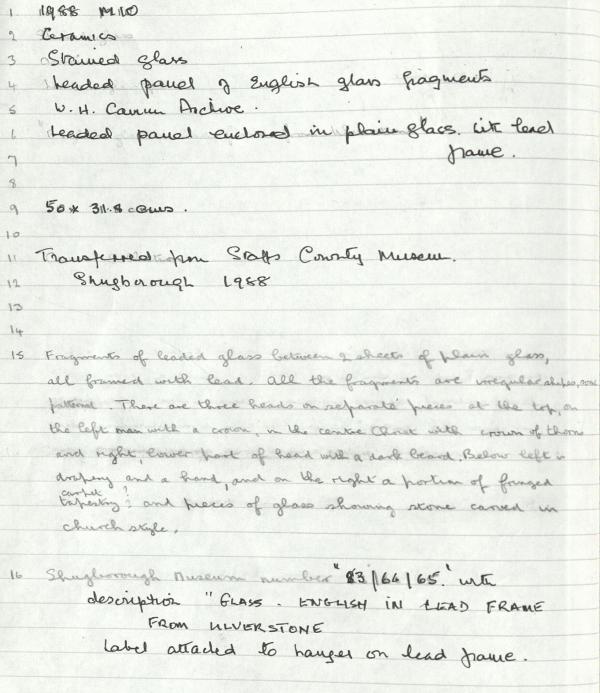 1 1988 M10
2 Ceramics
3 Stained glass
4 Leaded panel of English glass fragments
5 W. H. Archive.
6 Leaded panel enclosed in plain glass. with lead
7 frame.
8
9 50 x 31.8 cms.
10
11 Transferred from Staffs County Museum.
12 Shugborough 1988
13
14
15 Fragments of leaded glass between 2 sheets of plain glass,
all framed with lead. All the fragments are irregular shapes, some
patterned. There are three heads on separate pieces at the top, on
the left man with a crown, in the centre Christ with crown of thorns
and right, lower part of head with a dark beard. Below left is
drapery and a hand, and on the right a portion of fringed
carpet?
tapestry? and pieces of glass showing stone carved in
church style.
16 Shugborough Museum number "83/64/65." with
description "GLASS. ENGLISH IN LEAD FRAME
FROM ULVERSTONE
Label attached to hanger on lead frame.